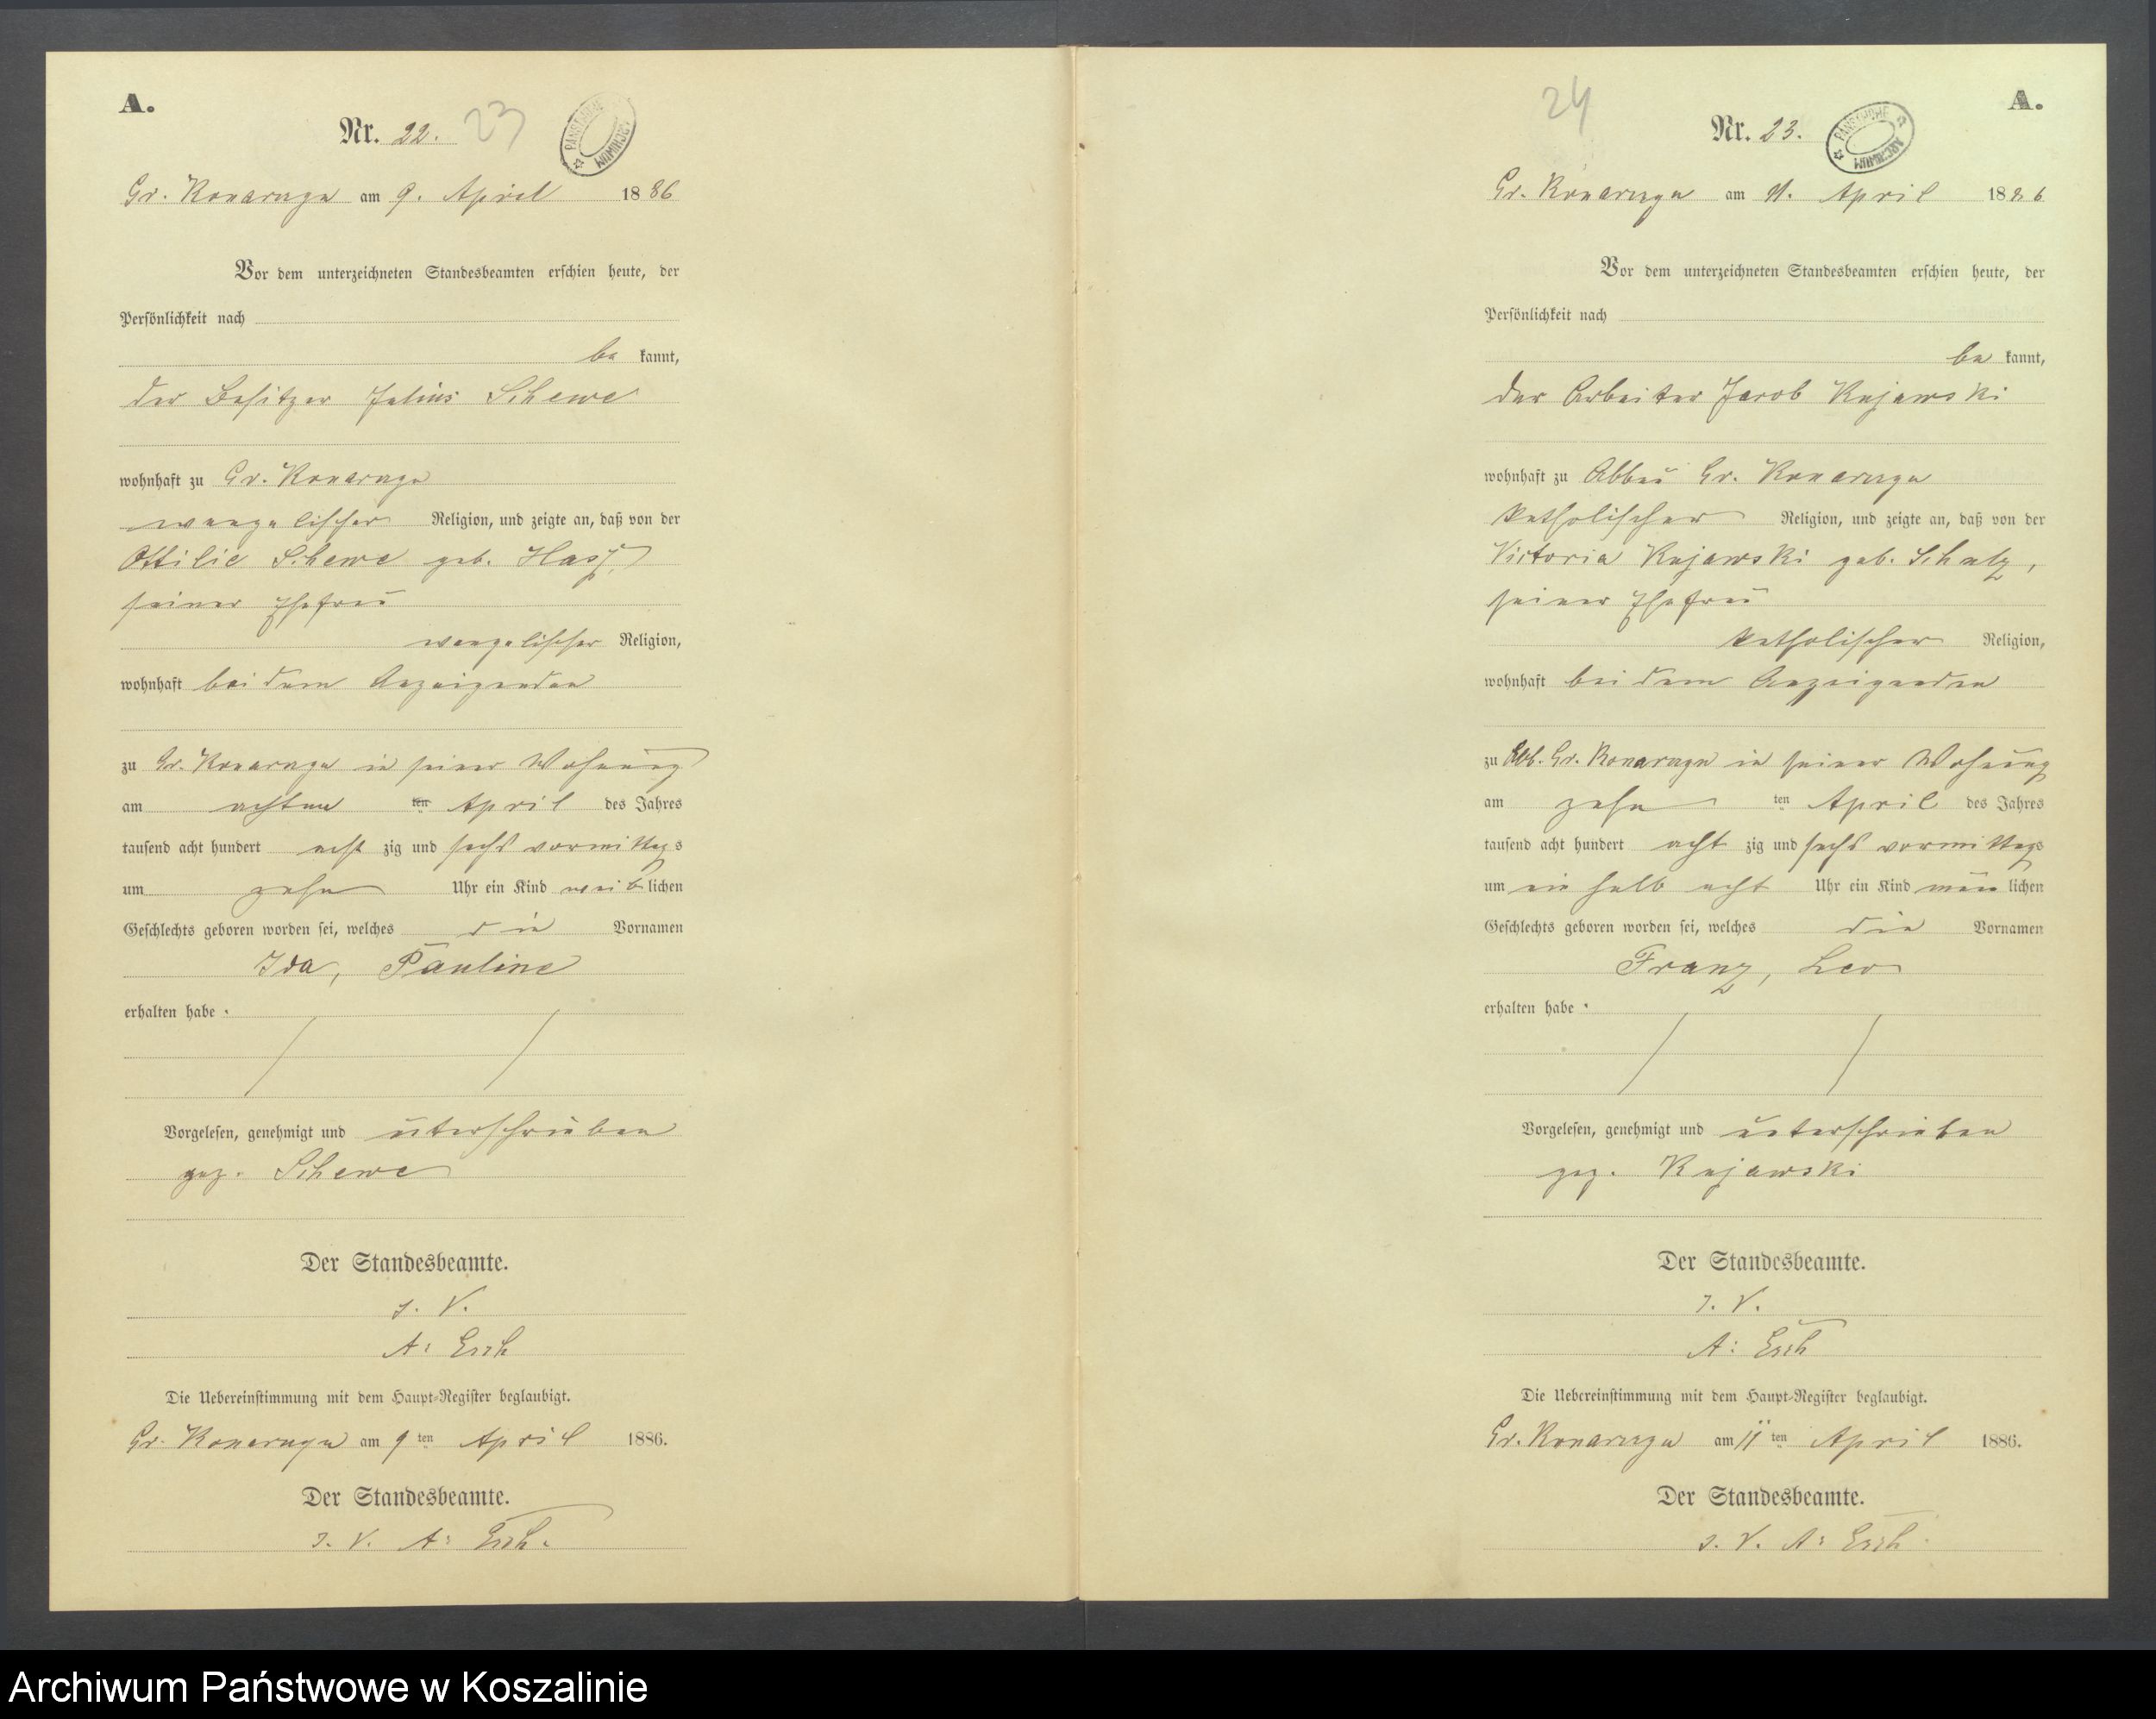 A.
Nr. 22. 23
PAŃSTWOWE ARCHIWUM
Gr. Konarzyn am 9. April 1886
Vor dem unterzeichneten Standesbeamten erschien heute, der
Persönlichkeit nach
be kannt,
der Besitzer Julius Schewe
wohnhaft zu Gr. Konarzyn
evangelischer Religion, und zeigte an, daß von der
Ottilie Schewe geb. Hass,
seiner Ehefrau
evangelischer Religion,
wohnhaft bei dem Anzeigenden
zu Gr. Konarzyn in seiner Wohnung
am achten ten April des Jahres
tausend acht hundert acht zig und sechs vormittags
um zehn Uhr ein Kind weib lichen
Geschlechts geboren worden sei, welches die Vornamen
Ida, Pauline
erhalten habe.
Vorgelesen, genehmigt und unterschrieben
gez. Schewe
Der Standesbeamte.
I. V.
A: Esch
Die Uebereinstimmung mit dem Haupt-Register beglaubigt.
Gr. Konarzyn am 9 ten April 1886.
Der Standesbeamte.
I. V. A: Esch.
24 A.
Nr. 23.
PAŃSTWOWE ARCHIWUM
Gr. Konarzyn am 11. April 1886
Vor dem unterzeichneten Standesbeamten erschien heute, der
Persönlichkeit nach
be kannt,
der Arbeiter Jacob Kujawski
wohnhaft zu Abbau Gr. Konarzyn
katholischer Religion, und zeigte an, daß von der
Victoria Kujawski geb. Schulz,
seiner Ehefrau
katholischer Religion,
wohnhaft bei dem Anzeigenden
zu Abb. Gr. Konarzyn in seiner Wohnung
am zehn ten April des Jahres
tausend acht hundert acht zig und sechs vormittags
um ein halb acht Uhr ein Kind män lichen
Geschlechts geboren worden sei, welches die Vornamen
Franz, Leo
erhalten habe.
Vorgelesen, genehmigt und unterschrieben
gez. Kujawski
Der Standesbeamte.
I. V.
A: Esch
Die Uebereinstimmung mit dem Haupt-Register beglaubigt.
Gr. Konarzyn am 11 ten April 1886.
Der Standesbeamte.
I. V. A: Esch
Archiwum Państwowe w Koszalinie